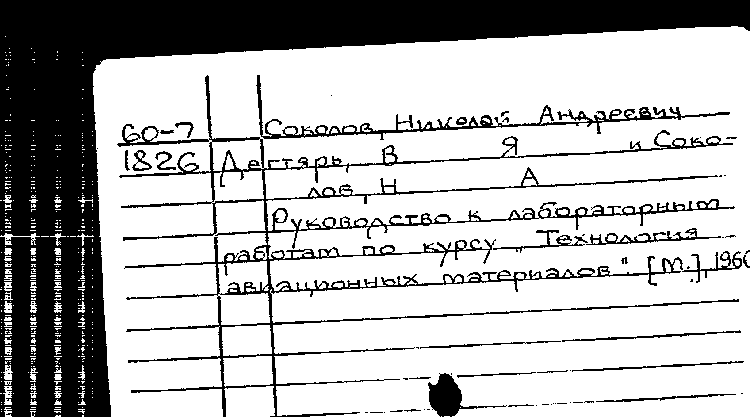 60-7 Соколов, Николай Андреевич
1826 Дегтярь, В Я и Соко-
лов, Н А
Руководство к лабораторным
работам по курсу „Технология
авиационных материалов". [М.], 1960